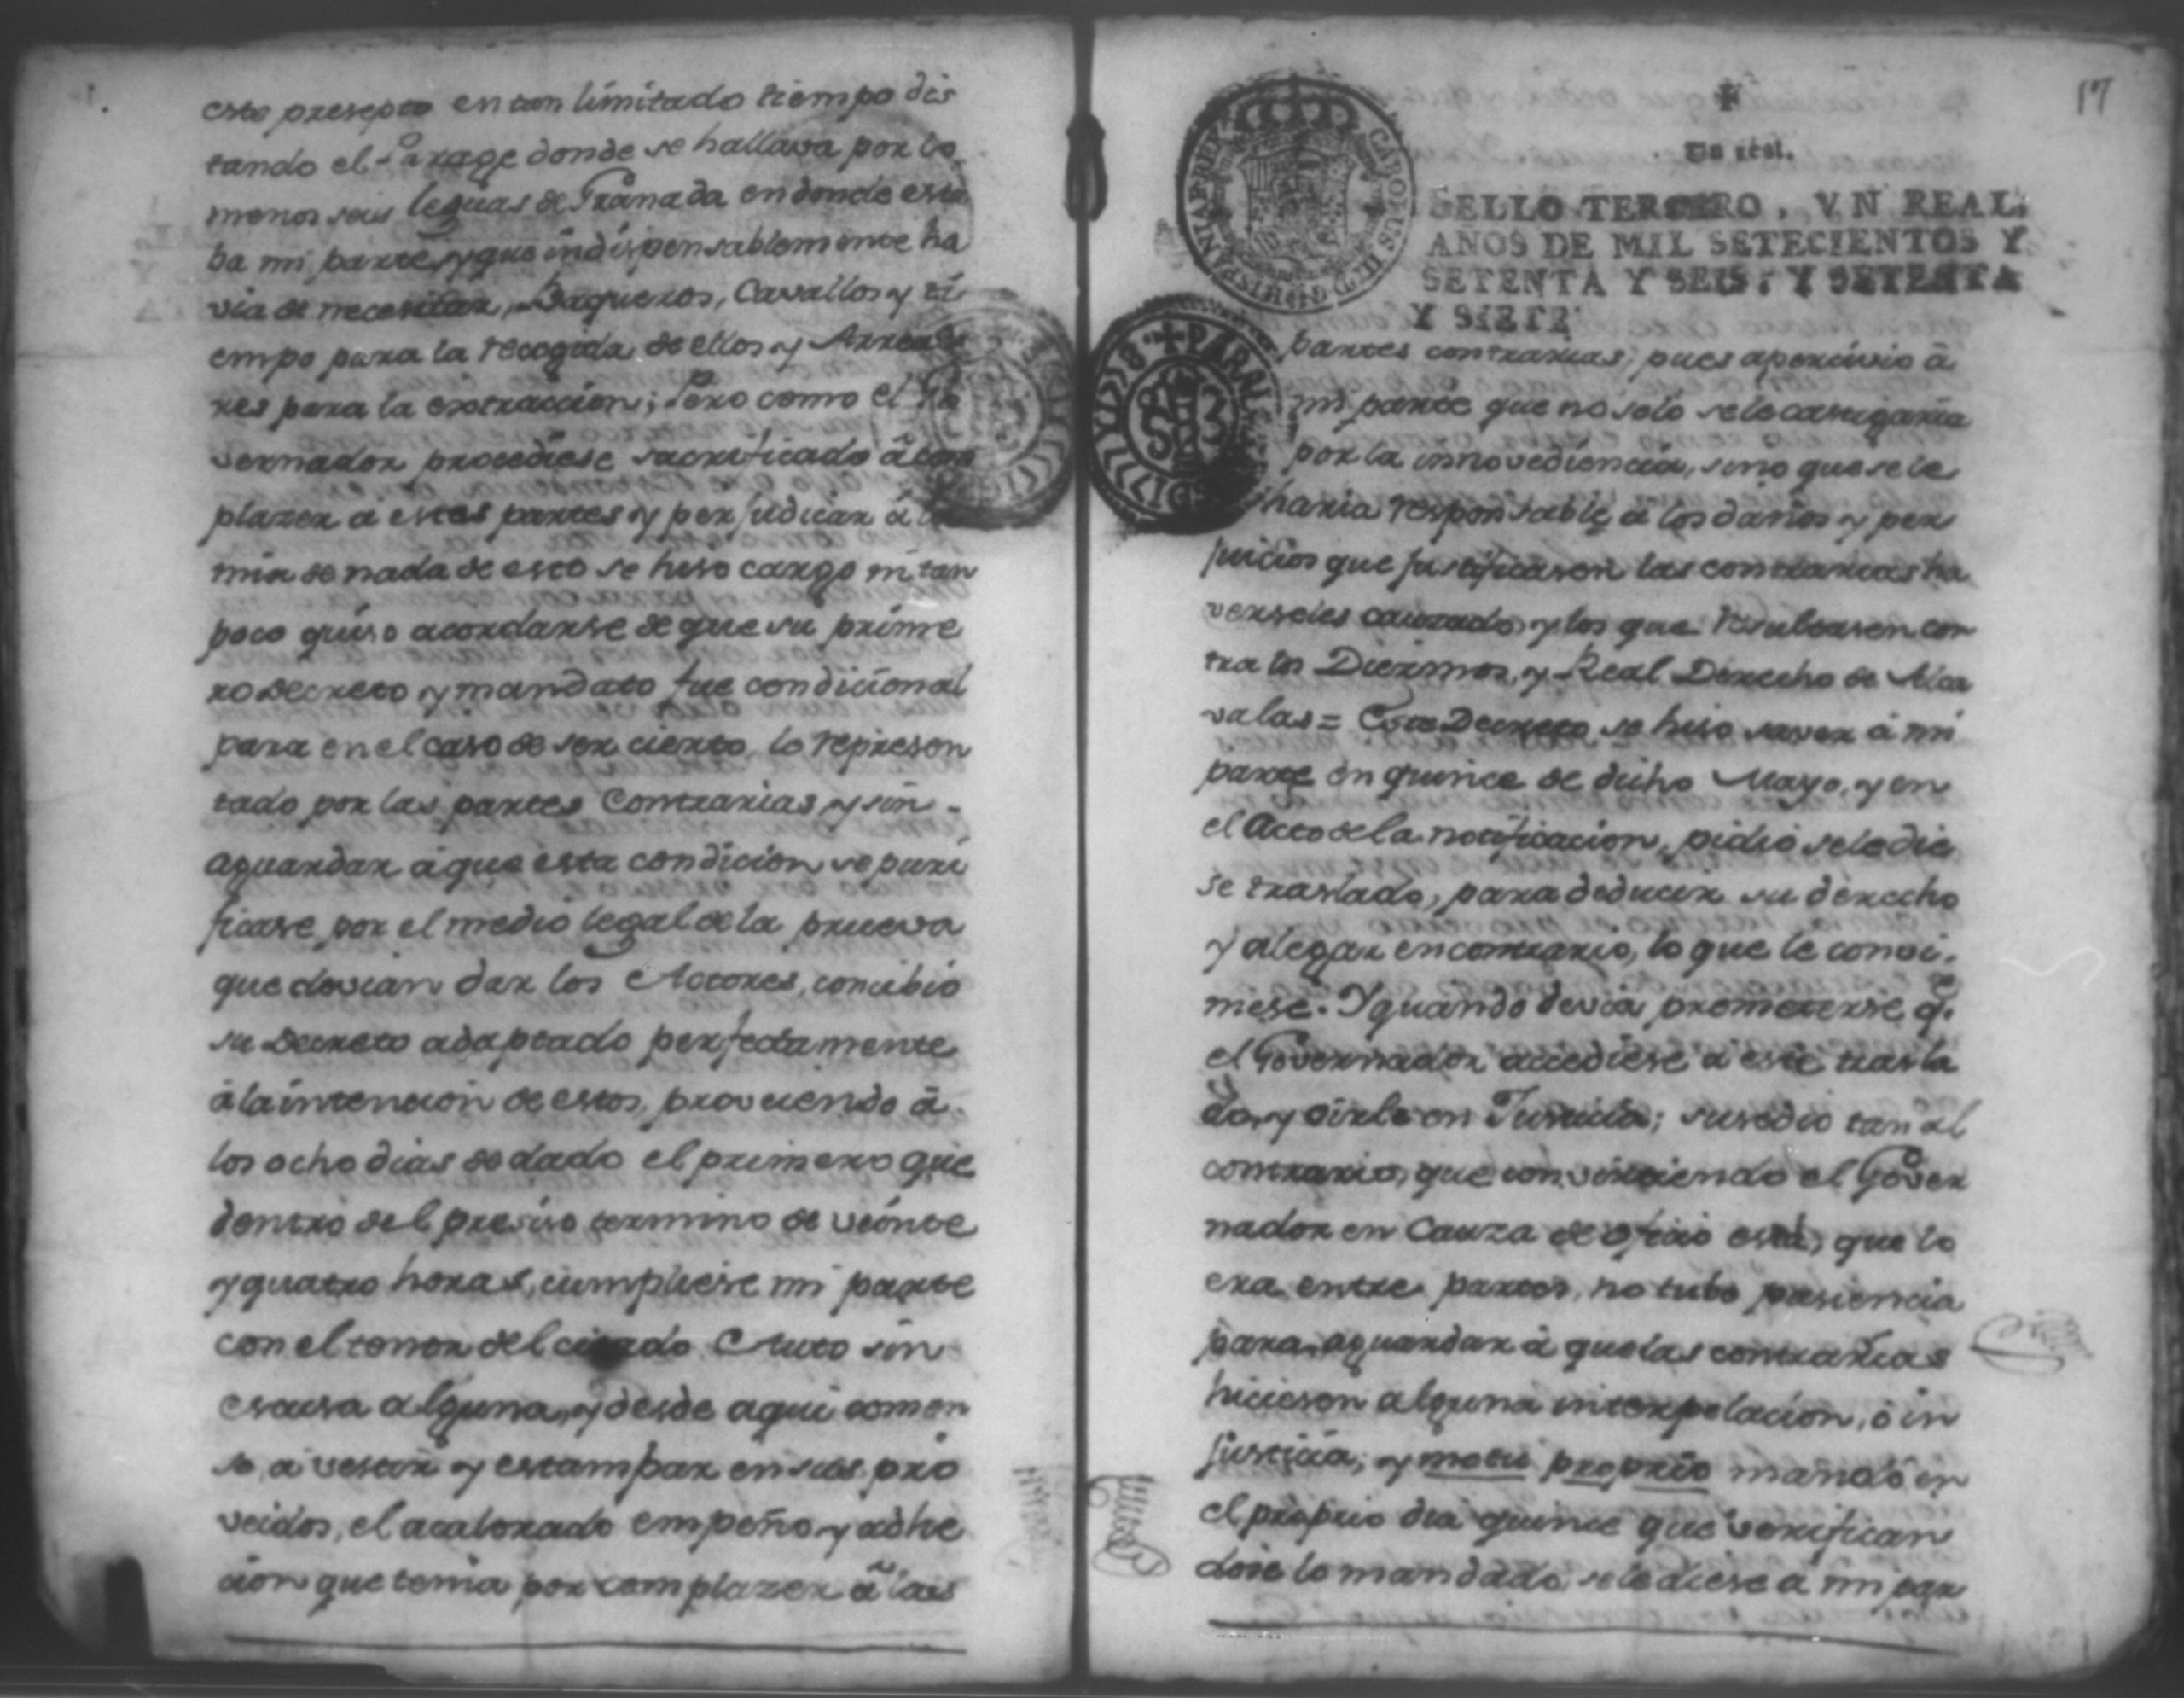 este presepto en tan limitado tiempo dis
tando el Parage donde se hallava por lo
menos seis leguas de Granada en donde esta
ba mi parte, y que indispensablemente ha
via de necesitar, Baqueros, Cavallos y ti
empo para la recogida, de ellos y Arreado
res para la extraccion; Pero como el Go
vernador procediese sacrificado â com
plazer a estas partes y perjudicar â la
mia de nada de esto se hiso cargo ni tan
poco quiso acordarse de que su prime
ro decreto y mandato fue condicional
para en el caso de ser cierto, lo represen
tado por las partes Contrarias y sin
aguardar a que esta condicion se puri
ficase, por el medio legal de la prueva
que devian dar los Actores, concibio
su Decreto adaptado perfectamente
a la intencion de estos, proveiendo â
los ocho dias de dado el primero que
dentro del preciso termino de veinte
y quatro horas, cumpliese mi parte
con el tenor del citado Auto sin
escusa alguna, y desde aqui comen
so, a vestir y estampar en sus pro
veidos, el acalorado empeño y adhe
cion que tenia por complazer â las
17
Un real.
SELLO TERCERO, VN REAL,
AÑOS DE MIL SETECIENTOS Y
SETENTA Y SEIS, Y SETENTA
Y SIETE
partes contrarias, pues apercivio â
mi parte que no solo se le castigaria
por la innovediencia, sino que se le
haria responsable â los daños y per
juicios que justificasen las contrarias ha
verseles cauzado, y los que resultasen con
tra los Diezmos, y Real Derecho de Alca
valas = Este Decreto se hiso saver â mi
parte en quince de dicho Mayo, y en
el Acto de la notificacion, pidio se le die
se traslado, para deducir su derecho
y alegar en contrario, lo que le convi
niese. Y quando devia prometerse q.e
el Governador accediese a este trasla
do, y oirle en Justicia; susedio tan al
contrario, que convirtiendo el Gover
nador en Cauza de oficio esta, que lo
era entre partes, no tubo pasiencia
para aguardar â que las contrarias
hiciesen alguna interpelacion, ô in
justicia, y motu proprio mandó en
el proprio dia quince que verifican
dose lo mandado se le diese â mi par